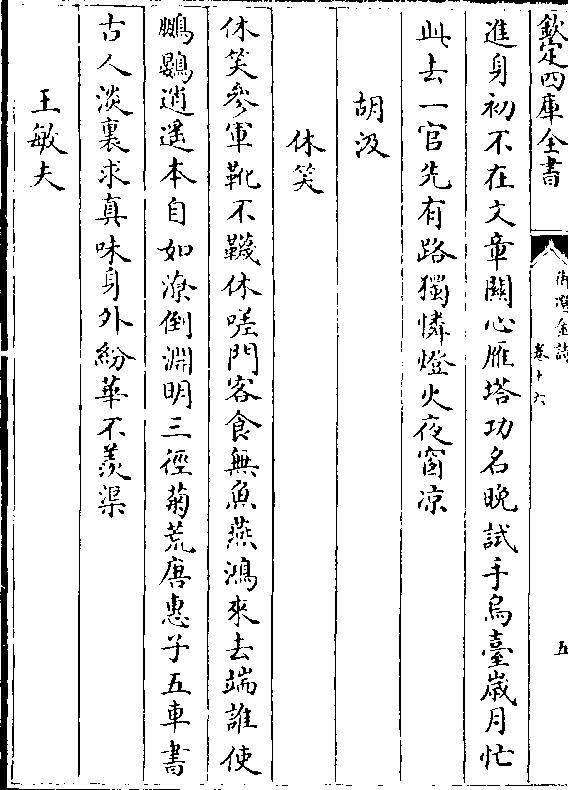 欽定四庫全書
御選金詩
卷十六
五
進身初不在文章關心雁塔功名晚試手烏臺歲月忙
此去一官先有路獨憐燈火夜窗凉
胡汲
休笑
休笑參軍靴不韈休嗟門客食無魚燕鴻來去端誰使
鵬鷃逍遥本自如潦倒淵明三徑菊荒唐惠子五車書
古人淡裏求真味身外紛華不羡渠
王敏夫